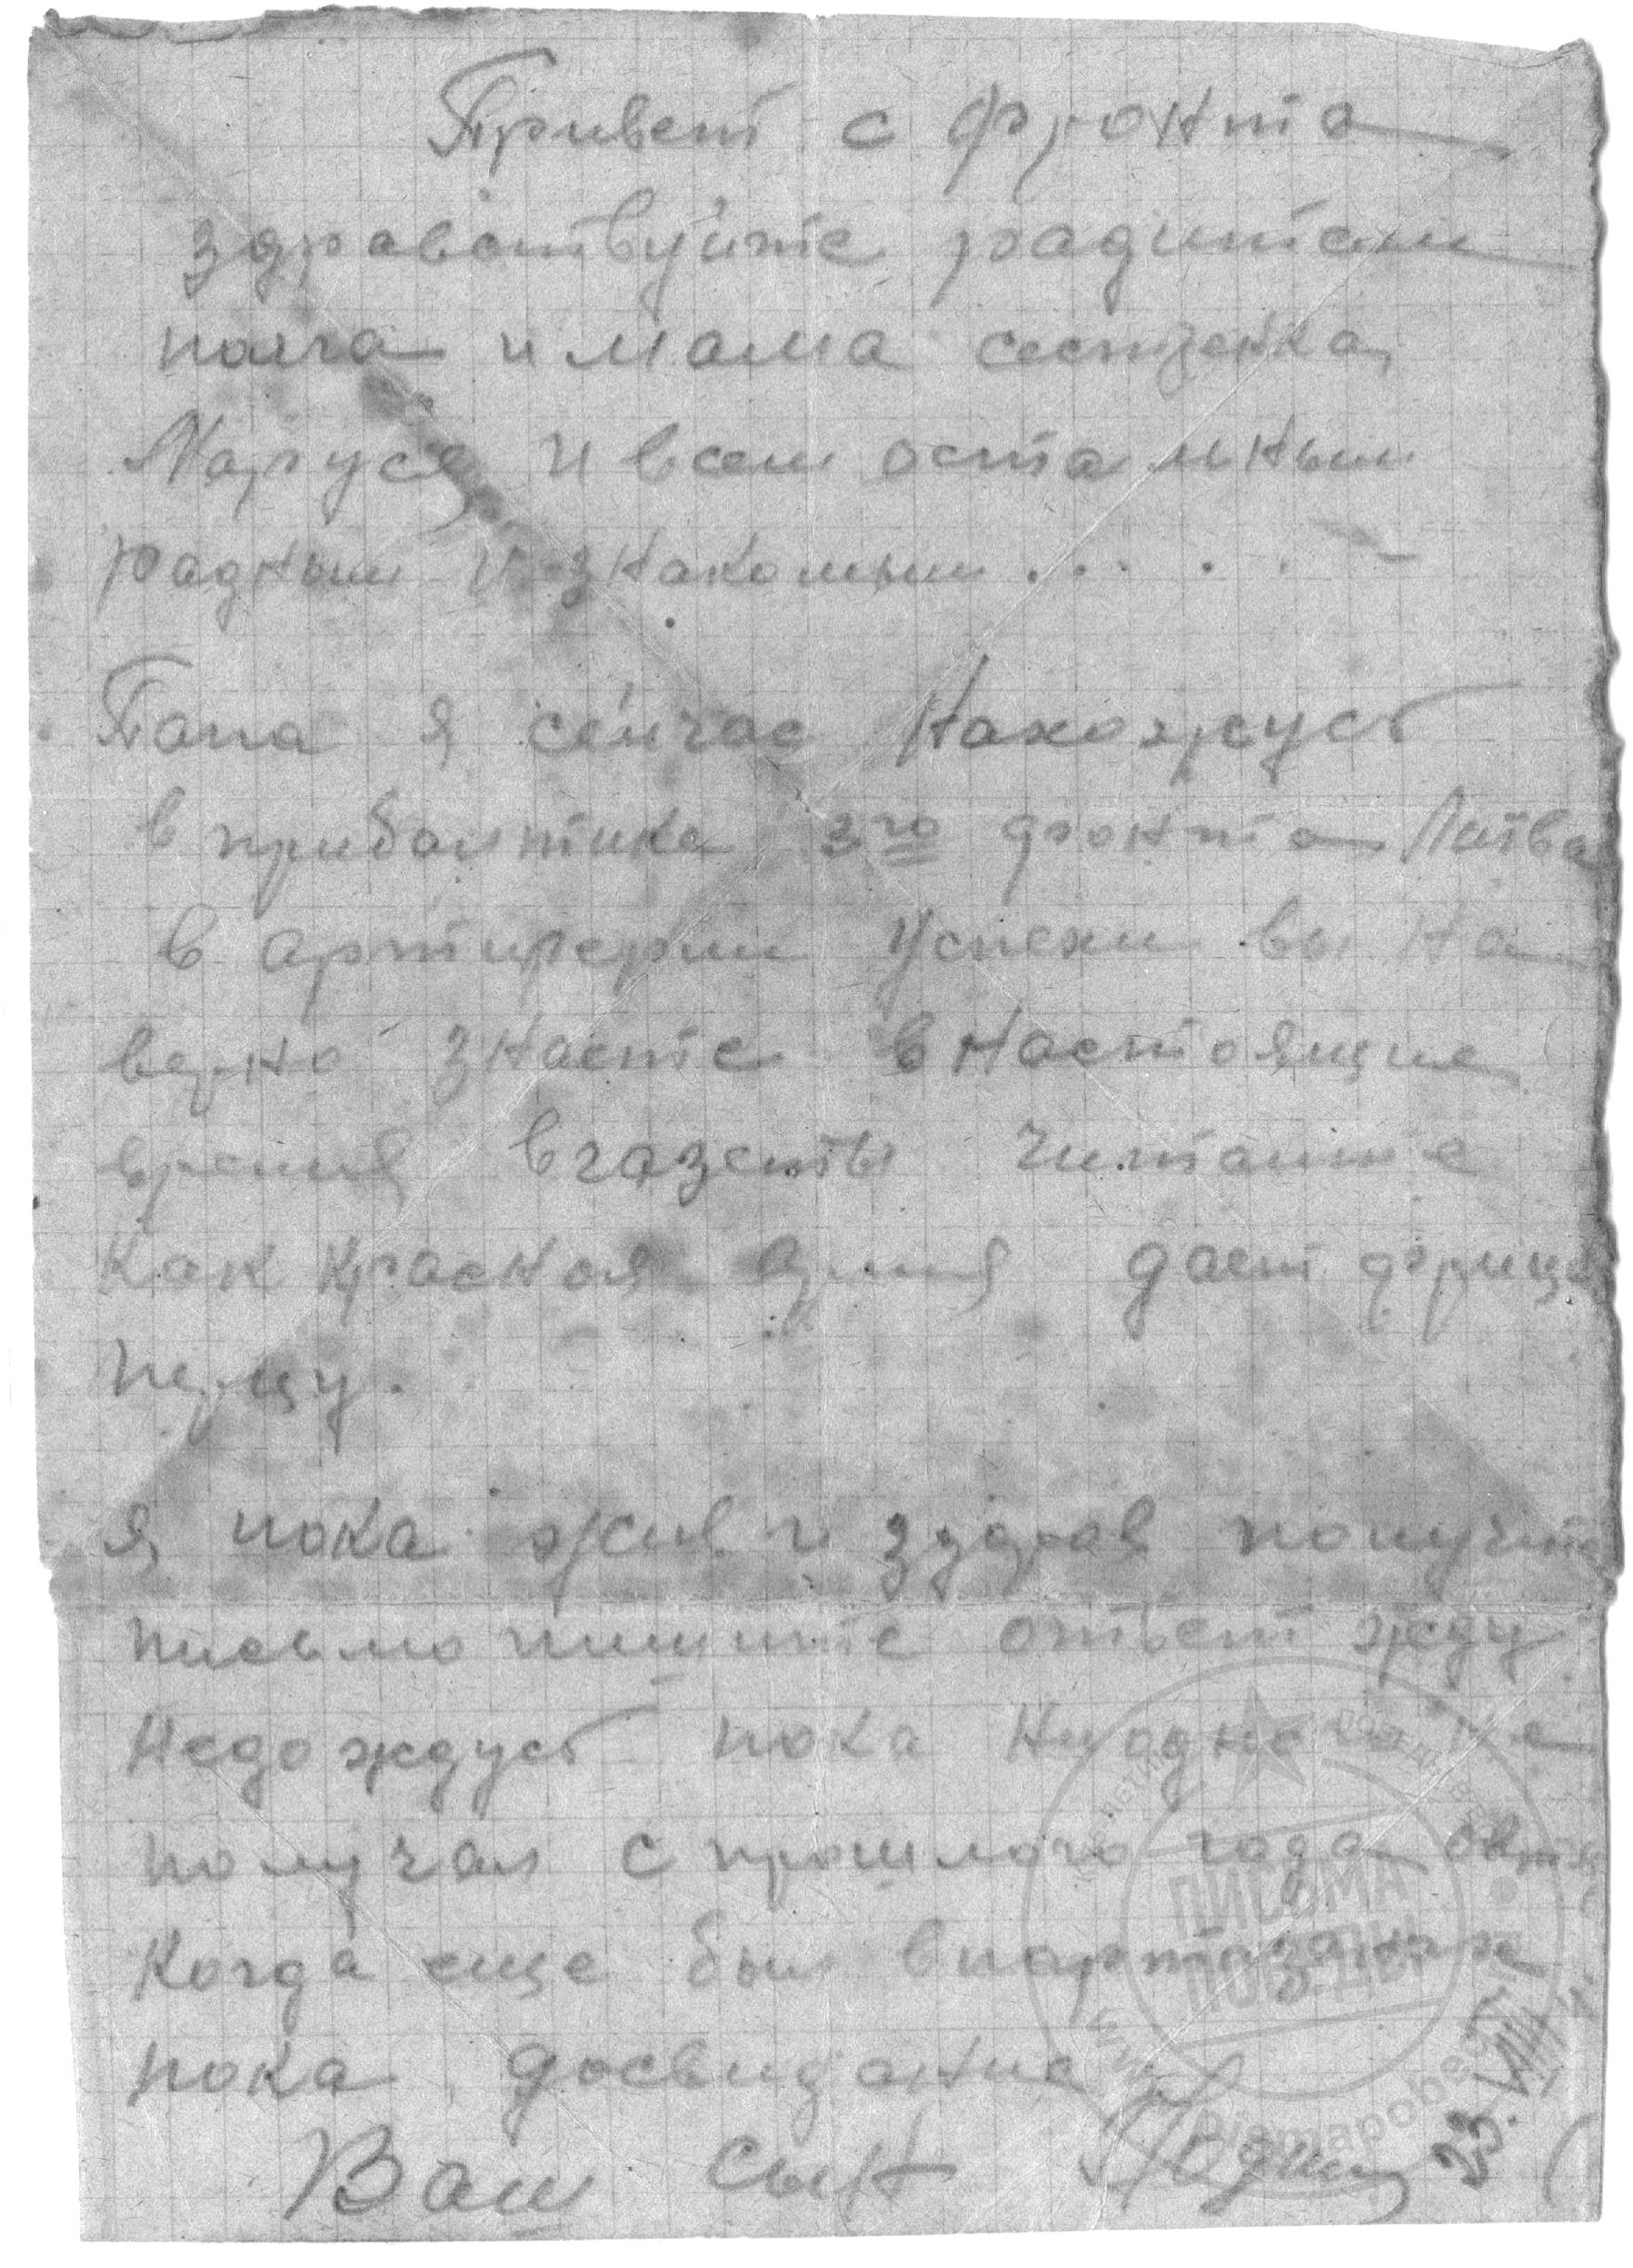 Привет с фронта
здравствуйте радители
папа и мама сестренка
Маруся и всем остальным
радным и знакомым . . . . . –
Папа я сейчас Нахожусь
в прибалтике 3го фронта Латва
в артилерии Успехи вы На
верно знаете в настоящие
время в газеты читаите
как красная армия дает фрицу
перцу.
я пока жив и здоров получите
письмо пишите ответ жду
Недождусь пока Ниодно не
получал с прошлого года
Когда еще был в партазанах
пока досвидание
Ваш сын
23.VIII
ПИСЬМА
ПОБЕДЫ